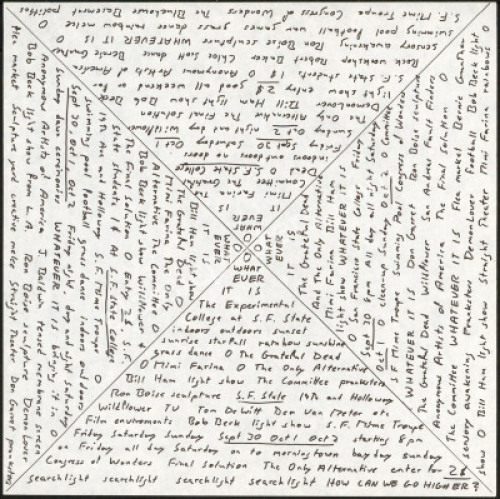 WHAT
EVER
IT IS
The Experimental
College at S.F. State
indoors outdoors sunset
sunrise starfall rainbow sunshine
grass dance O The Grateful Dead
O Mimi Farina O The Only Alternative
Bill Ham light show The Committee pranksters
Ron Boise sculpture S.F. State 19th and Holloway
Willflower TV Tom DeWitt Dan Van Meter etc
Film environments Bob Beck light show S.F. Mime Troupe
Friday Saturday Sunday Sept 30 Oct 1 Oct 2 starting 8 pm
on Friday all day Saturday on to morningstown bay day sunday
Congress of Wonders Final Solution The Only Alternative enter for 2$
searchlight searchlight searchlight searchlight HOW CAN WE GO HIGHER?
WHAT
EVER
IT IS
The Grateful Dead O
Bill Ham light show
Mimi Farina O The
Alternative The Committee O
Bob Beck light show Willflower +
The Final Solution O Entry 2$ S.F.
State students 1$ At S.F. State College
19th Ave and Holloway S.F. Mime Troupe O
swimming pool football grass dance indoors outdoors
Sept 30, Oct 1, Oct 2 Friday night day and night Saturday
Sunday down
WHATEVER IT IS bring it O
Anonymous Artists of America J Baldwin
membrane screen
Bob Beck light show from L.A. Ron Boise sculpture Demon Lover
flea market sculpture yard creative
Straight Theater Don Garret pranksters
WHAT
EVER
IT IS
Mimi Farina The
Committee The Grateful
Dead O S.F. State O
indoors outdoors no doors
Friday Sept 30 Saturday Oct 1
Sunday Oct 2 night and day Willflower
The Only Alternative The Final Solution
DemonLover Bill Ham light show Bob Beck
light show entry 2$ good all weekend or for
S.F. State students 1$ O Anonymous Artists of America
Rock workshop Robert Baker Chloe Scott dance Bernie Gunther
sensory awakening Ron Boise sculpture WHATEVER IT IS O
swimming pool football war games grass dance rainbow
O
S.F. Mime Troupe Congress of Wonders The
Basement politics
WHAT
EVER
IT IS
The Grateful Dead
And The Only Alternative
Mimi Farina Bill Ham
light show WHATEVER IT IS
O San Francisco State College Friday
Sept 30 8pm All day all night Saturday
Oct 1 O clean-up Sunday Oct 2 O Committee
S.F Mime Troupe Swimming Pool Congress of Wonders
WHATEVER IT IS Don Garret Ron Boise sculpture
The Grateful Dead Willflower San Andreas Fault Finders
Anonymous Artists of America The Final Solution O
The Committee WHATEVER IT IS Flea market Bernie Gunther
sensory awakening Pranksters DemonLover Football Bob Beck light
show O Bill Ham light show Straight Theater Mimi Farina rainbows O